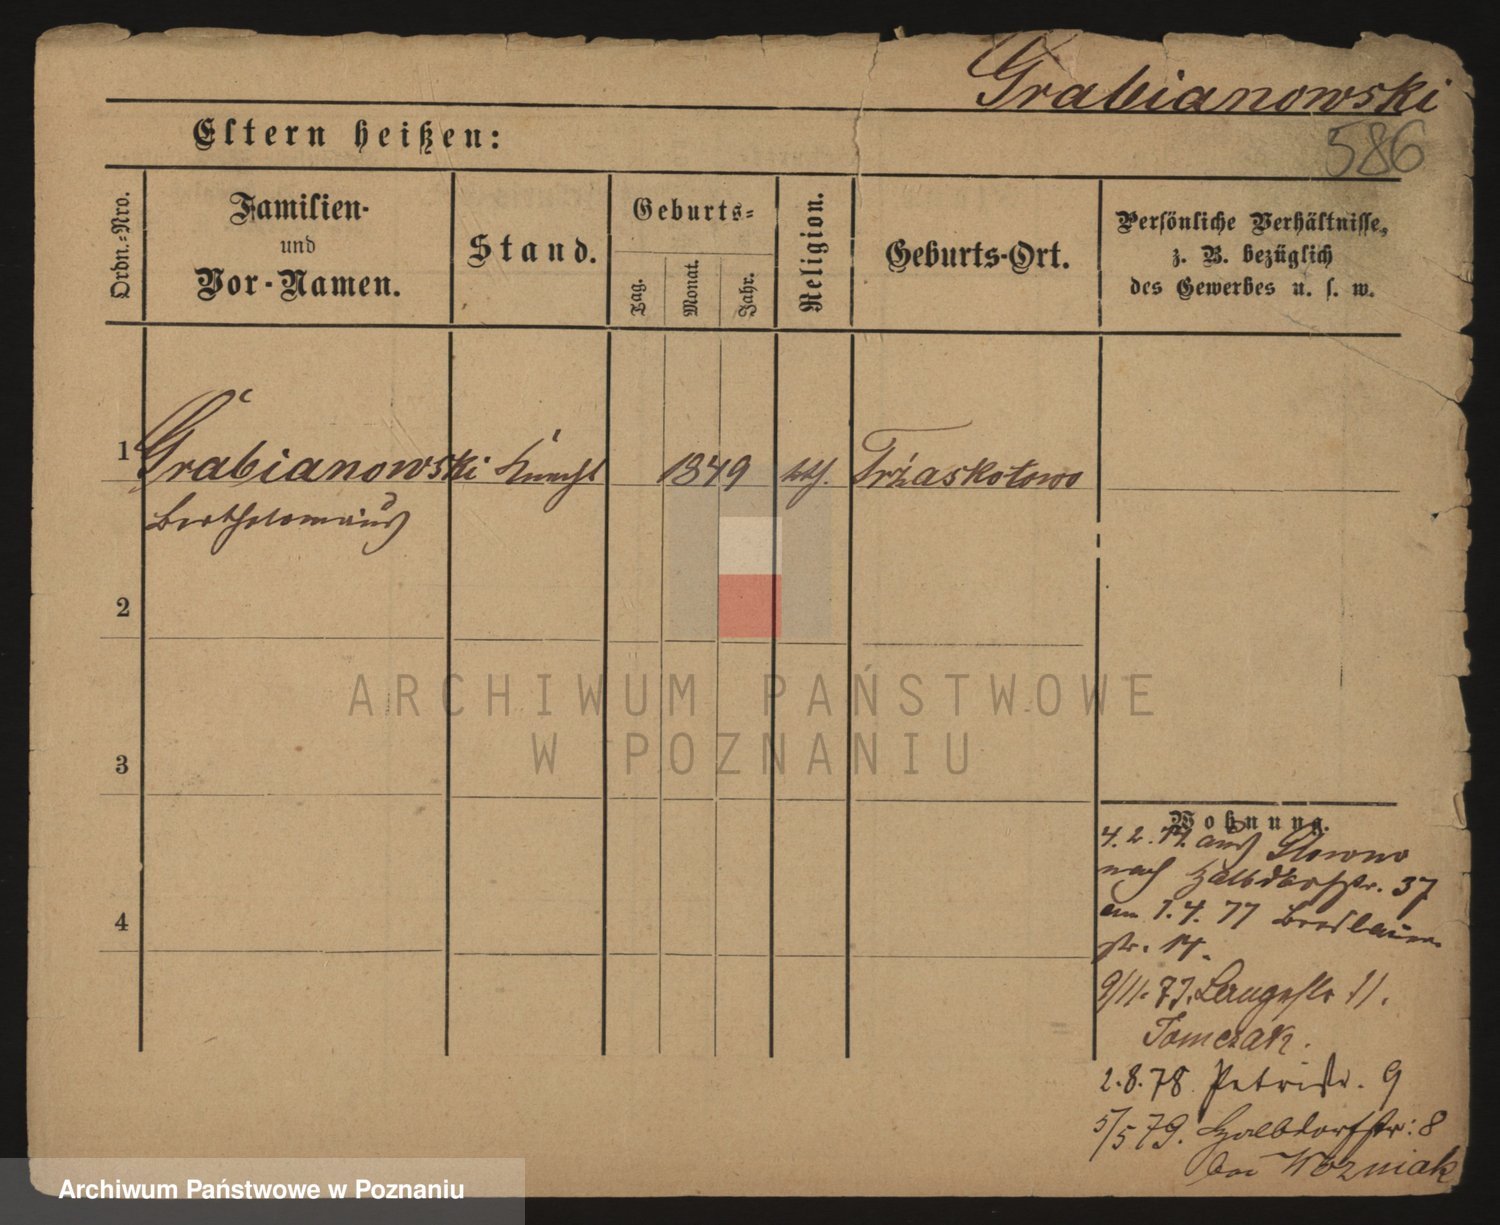 Grabianowski
586
Eltern heißen:
Ordn.=Nro.
Familien-
und
Vor-Namen.
Stand.
Geburts=
Tag.
Monat.
Jahr.
Religion.
Geburts-Ort.
Persönliche Verhältnisse,
z. B. bezüglich
des Gewerbes u. s. w.
1 Grabianowski Knecht 1849 kth. Trżaskotowo
Bartholomäus
2
3
4
ARCHIWUM PAŃSTWOWE
W POZNANIU
Wohnung.
4. 2. 77. aus Glowno
nach Halbdorfstr. 37
am 1. 4. 77
str. 14.
9/11. 77. Langestr 11.
Tomczak.
2. 8. 78 Petristr. 9
5/5 79. Halbdorfstr: 8
bei Wozniak
Archiwum Państwowe w Poznaniu